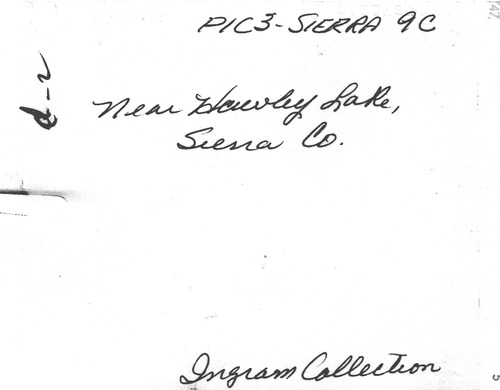 PIC3-SIERRA 9C
d-2
Near Hawley Lake,
Sierra Co.
Ingram Collection